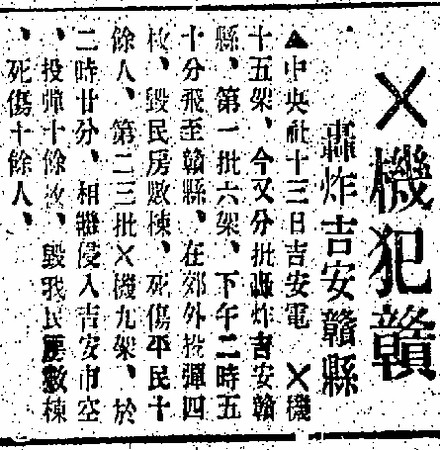 ×機犯贛
轟炸吉安贛縣
▲中央社十三日吉安電 ×機
十五架、今又分批轟炸吉安贛
縣、第一批六架、下午二時五
十分飛至贛縣、在郊外投彈四
枚、毀民房數棟、死傷平民十
餘人、第二三批×機九架、於
二時廿分、相繼侵入吉安市空
、投彈十餘枚、毀我民房數棟
、死傷十餘人、